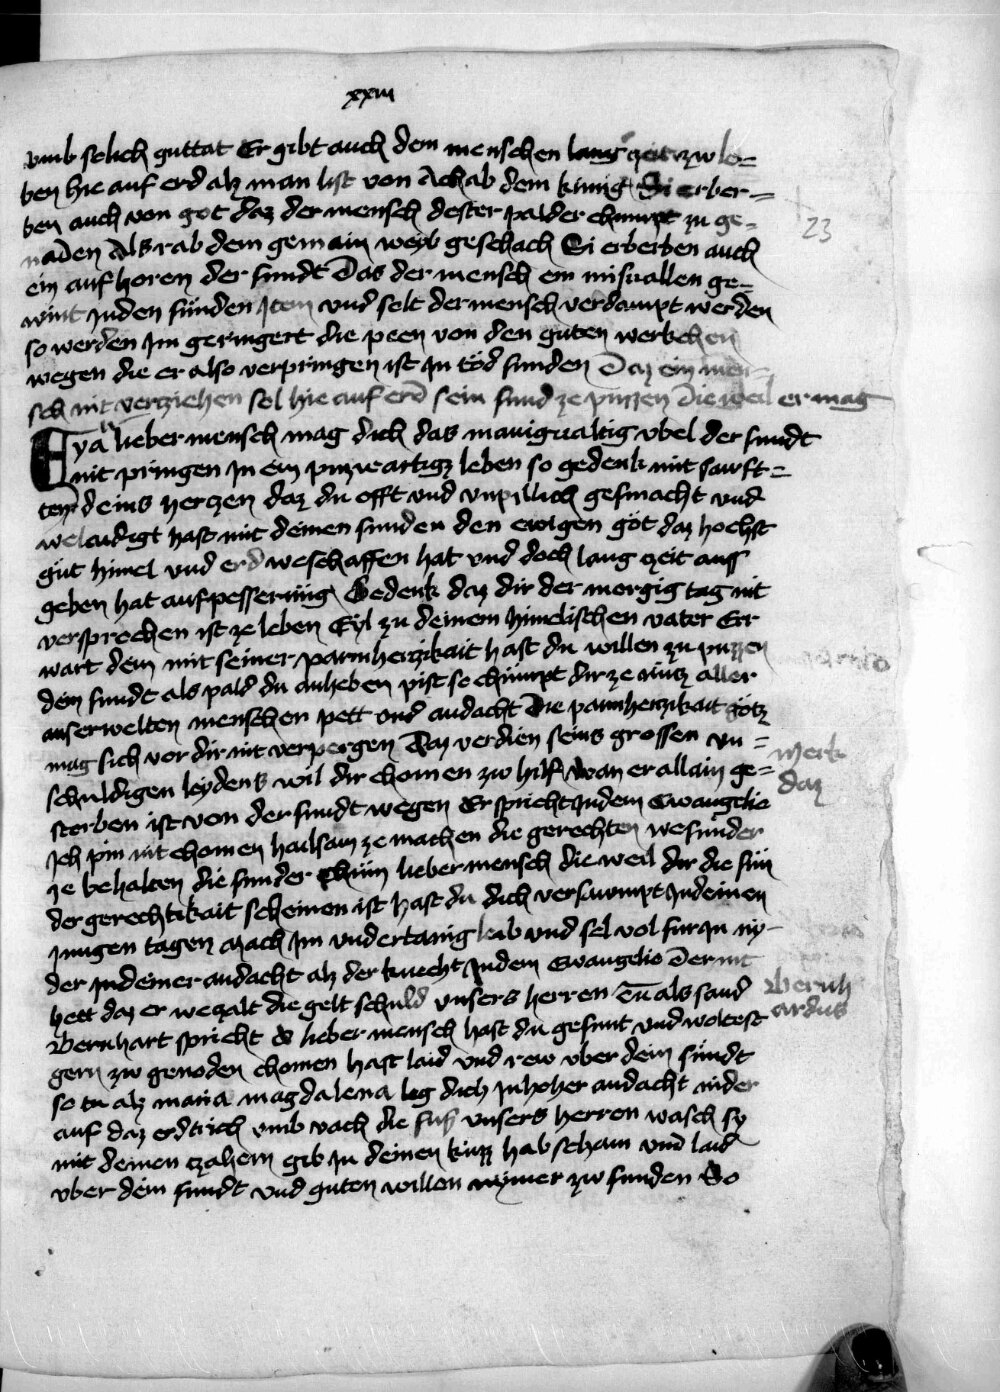 xxiii
vmb solich guttat Er gibt auch dem menschen lang zeit zw le=
ben hie auf erd alz man list von Achab dem kunig Si erber=
ben auch von got daz der mensch dester palder chumpt zu ge=
naden Als rab dem gemain weyb geschach Si erberben auch
ein auf horen der sundt Das der mensch ein misuallen ge=
wint jn den sünden Jtem vnd solt der mensch verdampt werden
so werden jm geringert die peen von den guten werkchen
wegen die er also verpringen ist jn töd sunden Daz ein men=
sch nit verziehen sol hie auf erd sein sund ze puzzen die weil er mag
Eya lieber mensch mag dich das manigualtig vbel der sundt
nit pringen jn ein puzwartigz leben so gedenk mit sawft=
tem deins hertzen daz du offt vnd vnpillich gesmacht vnd
welaidigt hast mit deinen sunden den ewigen got daz hochst
gut himel vnd erd weschaffen hat vnd doch lang zeit auff
geben hat auf pesserung Gedenk daz dir der morgig tag nit
versprochen ist ze leben Eyl zu deinem himelischen vater Er
wart dein mit seiner parmherzikait hast du willen zu puzzen
dein sundt als pald du anheben pist so chumpt dir ze nutz aller
auserwelten menschen pett vnd andacht Die parmherzikait gotz
mag sich vor dir nit verpergen Daz verdien seins grossen vn=
schuldigen leydens wil dir chomen zw hilf wan er allain ge=
storben ist von der sundt wegen Er spricht jn dem Ewangelio
Jch pin nit chomen hailsam ze machen die gerechten wesunder
ze behalten die sunder Chum lieber mensch die weil dir die sün
der gerechtikait scheinen ist hast du dich versawmpt jn deinen
jungen tagen Mach jm vndertanig leib vnd sel vol fur jn ny=
der jn deiner andacht alz der knecht jn dem Ewangelio Der nit
hett daz er wezalt die gelt schuld vnsers herren Tu als sand
Bernhart spricht O lieber mensch hast du gesunt vnd woltest
gern zw genoden chomen hast laid vnd rew vber dein sundt
so tu alz maria magdalena leg dich jn hoher andacht nider
auf daz erdtrich vmb vach die fuß vnsers herren wasch sy
mit deinen czahern gib jn deinen kuzz hab scham vnd laid
vber dein sundt vnd guten willen nymer zw sunden So
23
Merk
daz
Bernh
ardus